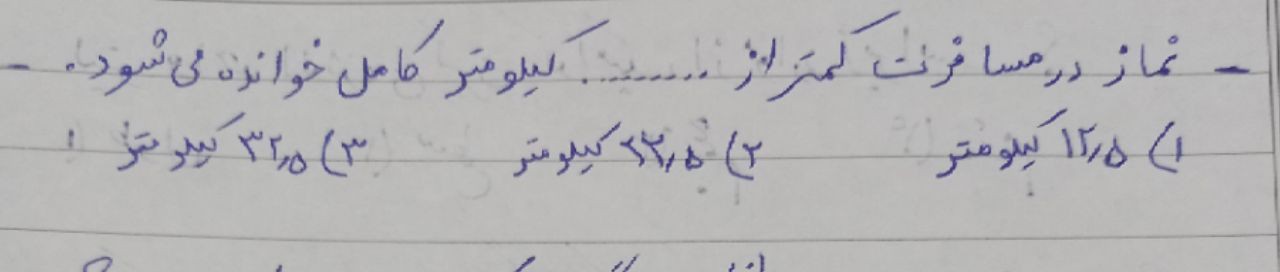 - نماز در مسافرت کمتر از ........ کیلومتر کامل خوانده می شود. -
۱) ۱۲٫۵ کیلومتر ۲) ۲۲٫۵ کیلومتر ۳) ۳۲٫۵ کیلومتر